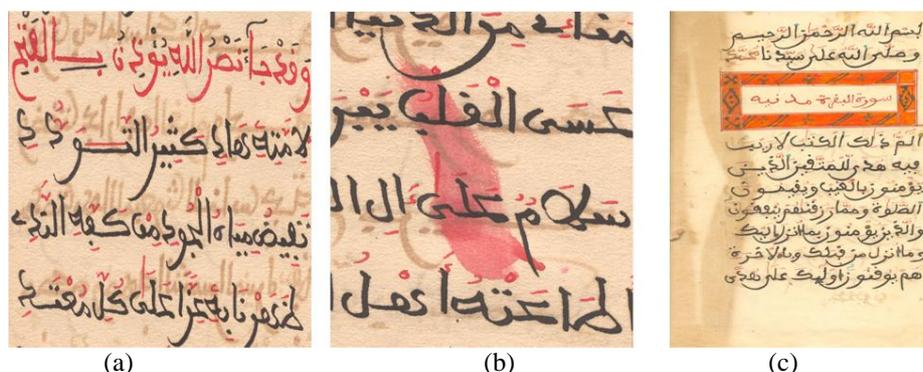 وقد جآ نصر الله يوذن بالفتح
لامته هاد كثير التودد
تفيض مياه الجود من كفه الندي
ظفرنا به عزا على كل معتد
(a)
من ال
عسى القلب يبر
سلام على ال ال
اطاعته اهل ا
(b)
بسم الله الرحمن الرحيم
وصلى الله على سيدنا محمد
سورة البقرة مدنية
الم ذلك الكتب لا ريب
فيه هدى للمتقين الذين
يومنون بالغيب ويقيمون
الصلوة ومما رزقنهم ينفقون
والذين يومنون بما انزل اليك
وما انزل من قبلك وبالاخرة
هم يوقنون اوليك على هدى
(c)